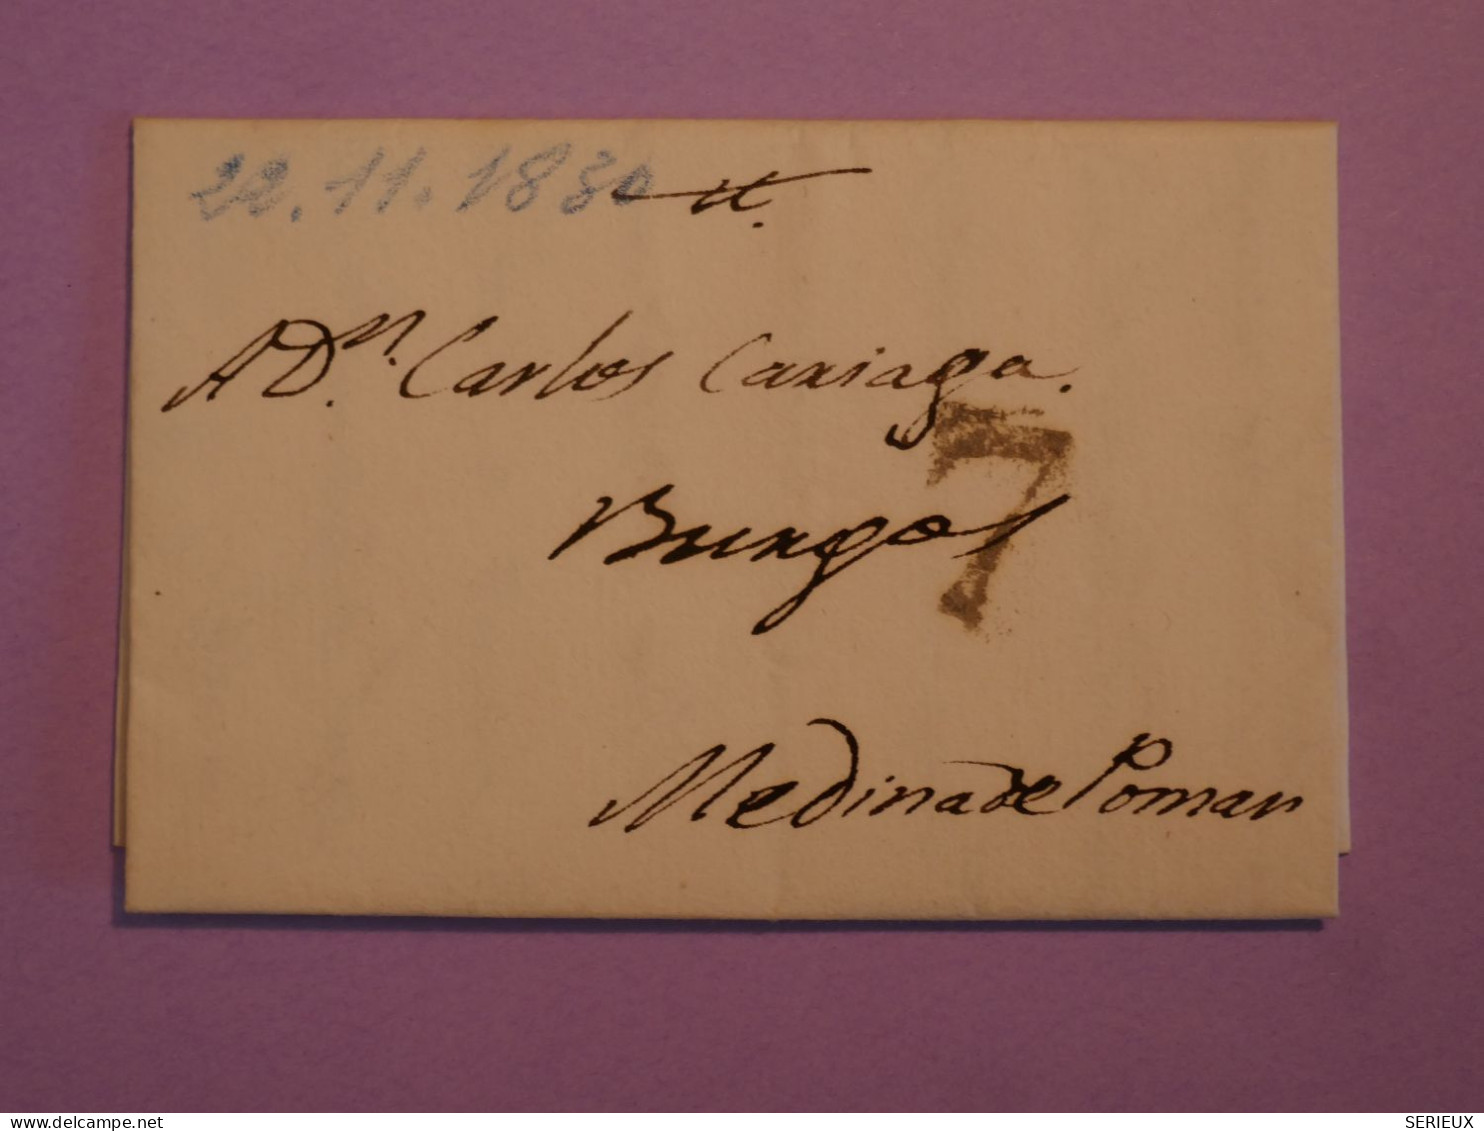 22.11.1830
A Dn. Carlos Cariaga.
7
Burgos
Medina de Pomar
delcampe.net
SERIEUX